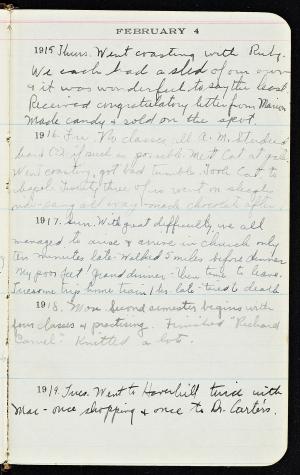 FEBRUARY 4
1915 Thurs. Went coasting with Ruby.
We each had a sled of our own
& it was wonderful to say the least.
Received congratulatory letter from Marion
Made candy & sold on the spot.
1916. Fri. No classes till A. M. Studied
hard if such is possible. Met Cat at gate.
Went coasting, got bad tumble. Took Cat to
Twenty three of us went on
sang all way home chocolate after
1917. Sun. With great difficulty, we all
managed to arise & arrive in church only
ten minutes late. Walked 5 miles before dinner
My poor feet! Grand dinner - Then time to leave.
Tiresome trip home, train 1 hr. late - tired to death
1918. Mon. Second semester begins with
four classes & practising. Finished "Richard
Carvel" Knitted a lot.
1919. Tues. Went to Haverhill twice with
Mac - once shopping & once to Dr. Carters.